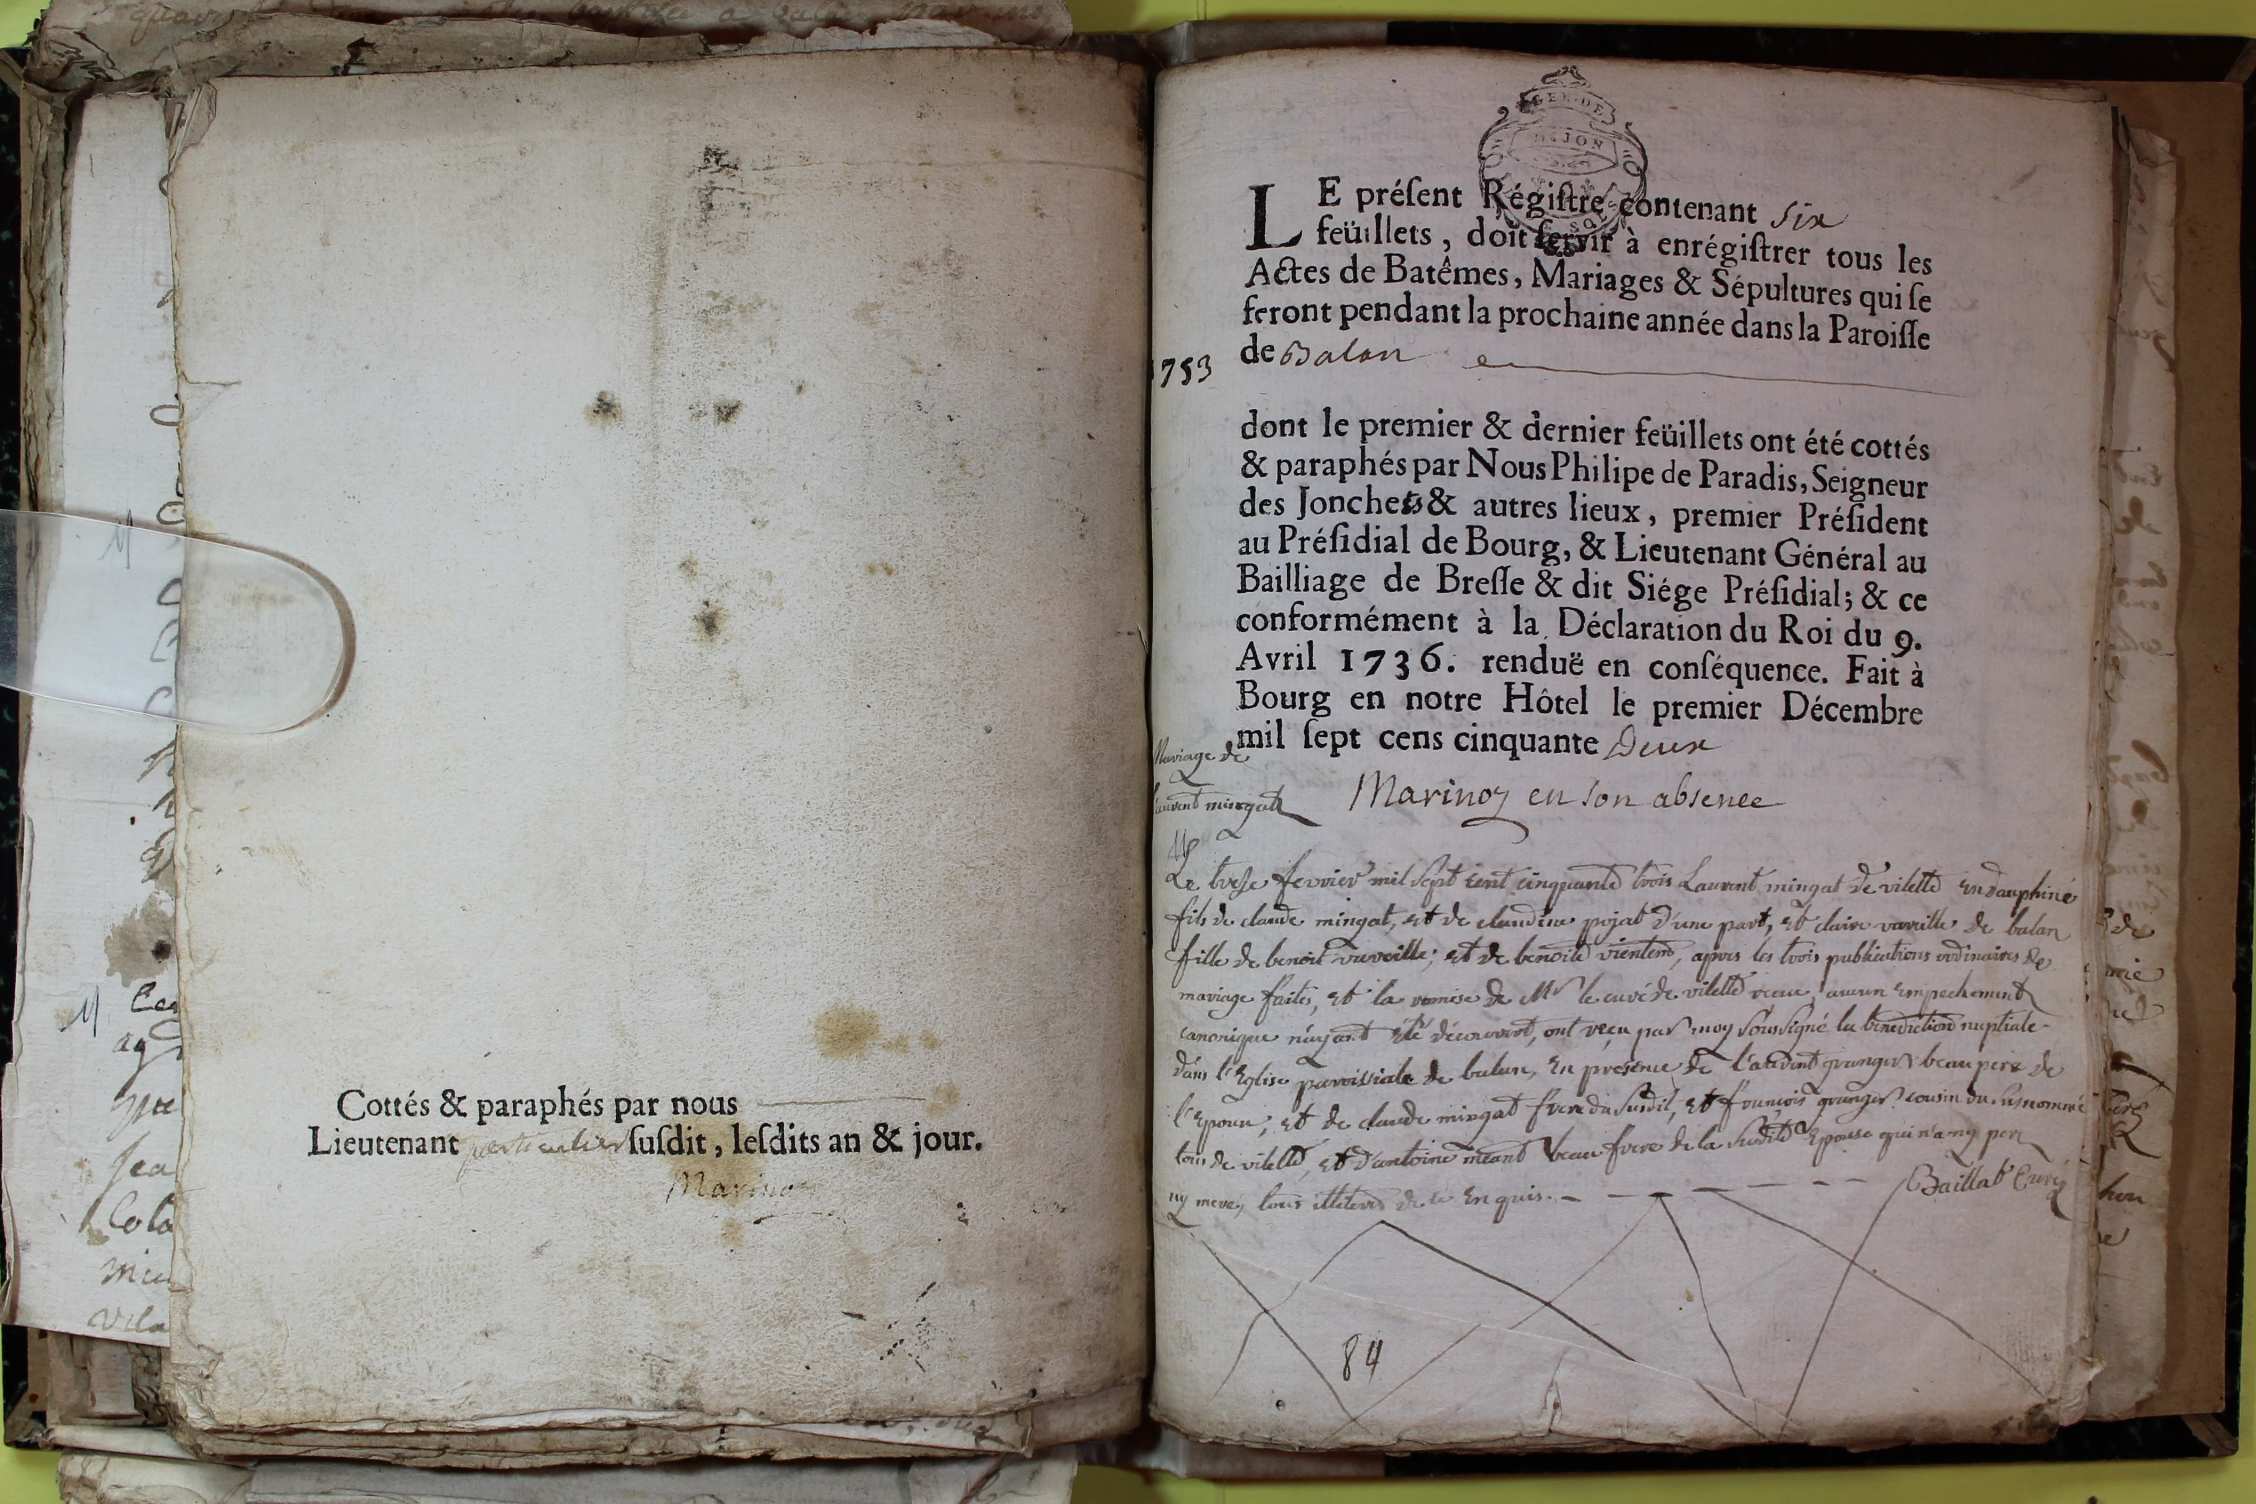 Cottés & paraphés par nous
Lieutenant particulier suſdit, leſdits an & jour.
Marinoz
GEN. DE
DIJON
LE préſent Régiſtre contenant six
feüillets, doit ſervir à enrégiſtrer tous les
Actes de Batêmes, Mariages & Sépultures qui ſe
feront pendant la prochaine année dans la Paroiſſe
de Balan
1753
dont le premier & dernier feüillets ont été cottés
& paraphés par Nous Philipe de Paradis, Seigneur
des Jonchets & autres lieux, premier Préſident
au Préſidial de Bourg, & Lieutenant Général au
Bailliage de Breſſe & dit Siége Préſidial; & ce
conformément à la Déclaration du Roi du 9.
Avril 1736. renduë en conſéquence. Fait à
Bourg en notre Hôtel le premier Décembre
mil ſept cens cinquante Deux
Marinoz en son absence
Mariage de
laurent mingat
Le treise fevrier mil sept cent cinquante trois Laurent mingat de vilette en dauphiné
fils de claude mingat, et de claudine pojat d'une part, et claire de balan
fille de benoit et de benoite apres les trois publications ordinaires de
mariage faites, et la remise de Mr le curé de vilette recue, aucun empechement
canonique n'ayant été découvert, ont reçu par moy soussigné la benediction nuptiale
dans l'Eglise paroissiale de balan, en presence de granger beau pere de
l'epoux, et de claude mingat frere du susdit, et françois granger cousin du susnommé
tous de vilette, et d'antoine méant beau frere de la susdite Epouse qui n'a ny pere
ny mere, tous illiteres de ce enquis
Baillat Curé
84